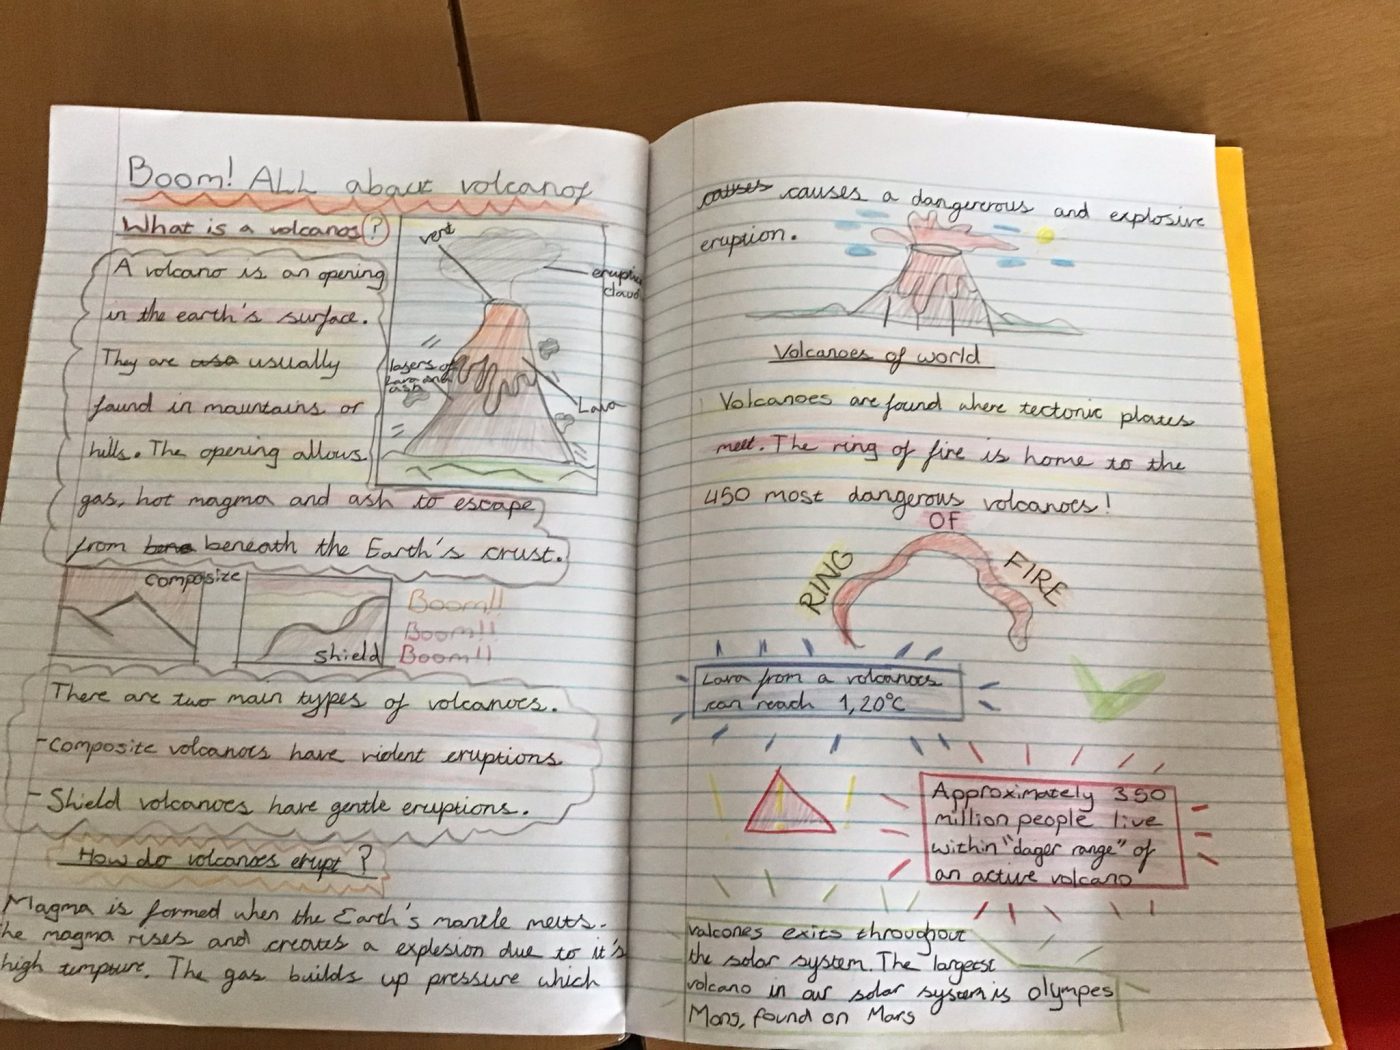 Boom! ALL about volcanos
What is a volcanos?
vent
eruption
cloud
layers of
Lava and
ash
Lava
A volcano is an opening
in the earth's surface.
They are also usually
found in mountains or
hills. The opening allows
gas, hot magma and ash to escape
from bene beneath the Earth's crust.
composite
shield
Boom!!
Boom!!
Boom!!
There are two main types of volcanoes.
-composite volcanoes have violent eruptions
- Shield volcanoes have gentle eruptions.
How do volcanoes erupt?
Magma is formed when the Earth's mantle melts.
he magma rises and creates a explesion due to it's
high tempture. The gas builds up pressure which
causes causes a dangererous and explosive
eruption.
Volcanoes of world
Volcanoes are found where tectonic plates
meet. The ring of fire is home to the
450 most dangerous volcanoes!
RING OF FIRE
Lava from a volcanoes
can reach 1,20°C
Approximately 350
million people live
within "dager range" of
an active volcano
valcones exits throughout
the solar system. The largest
volcano in our solar system is olympes
Mons, found on Mars